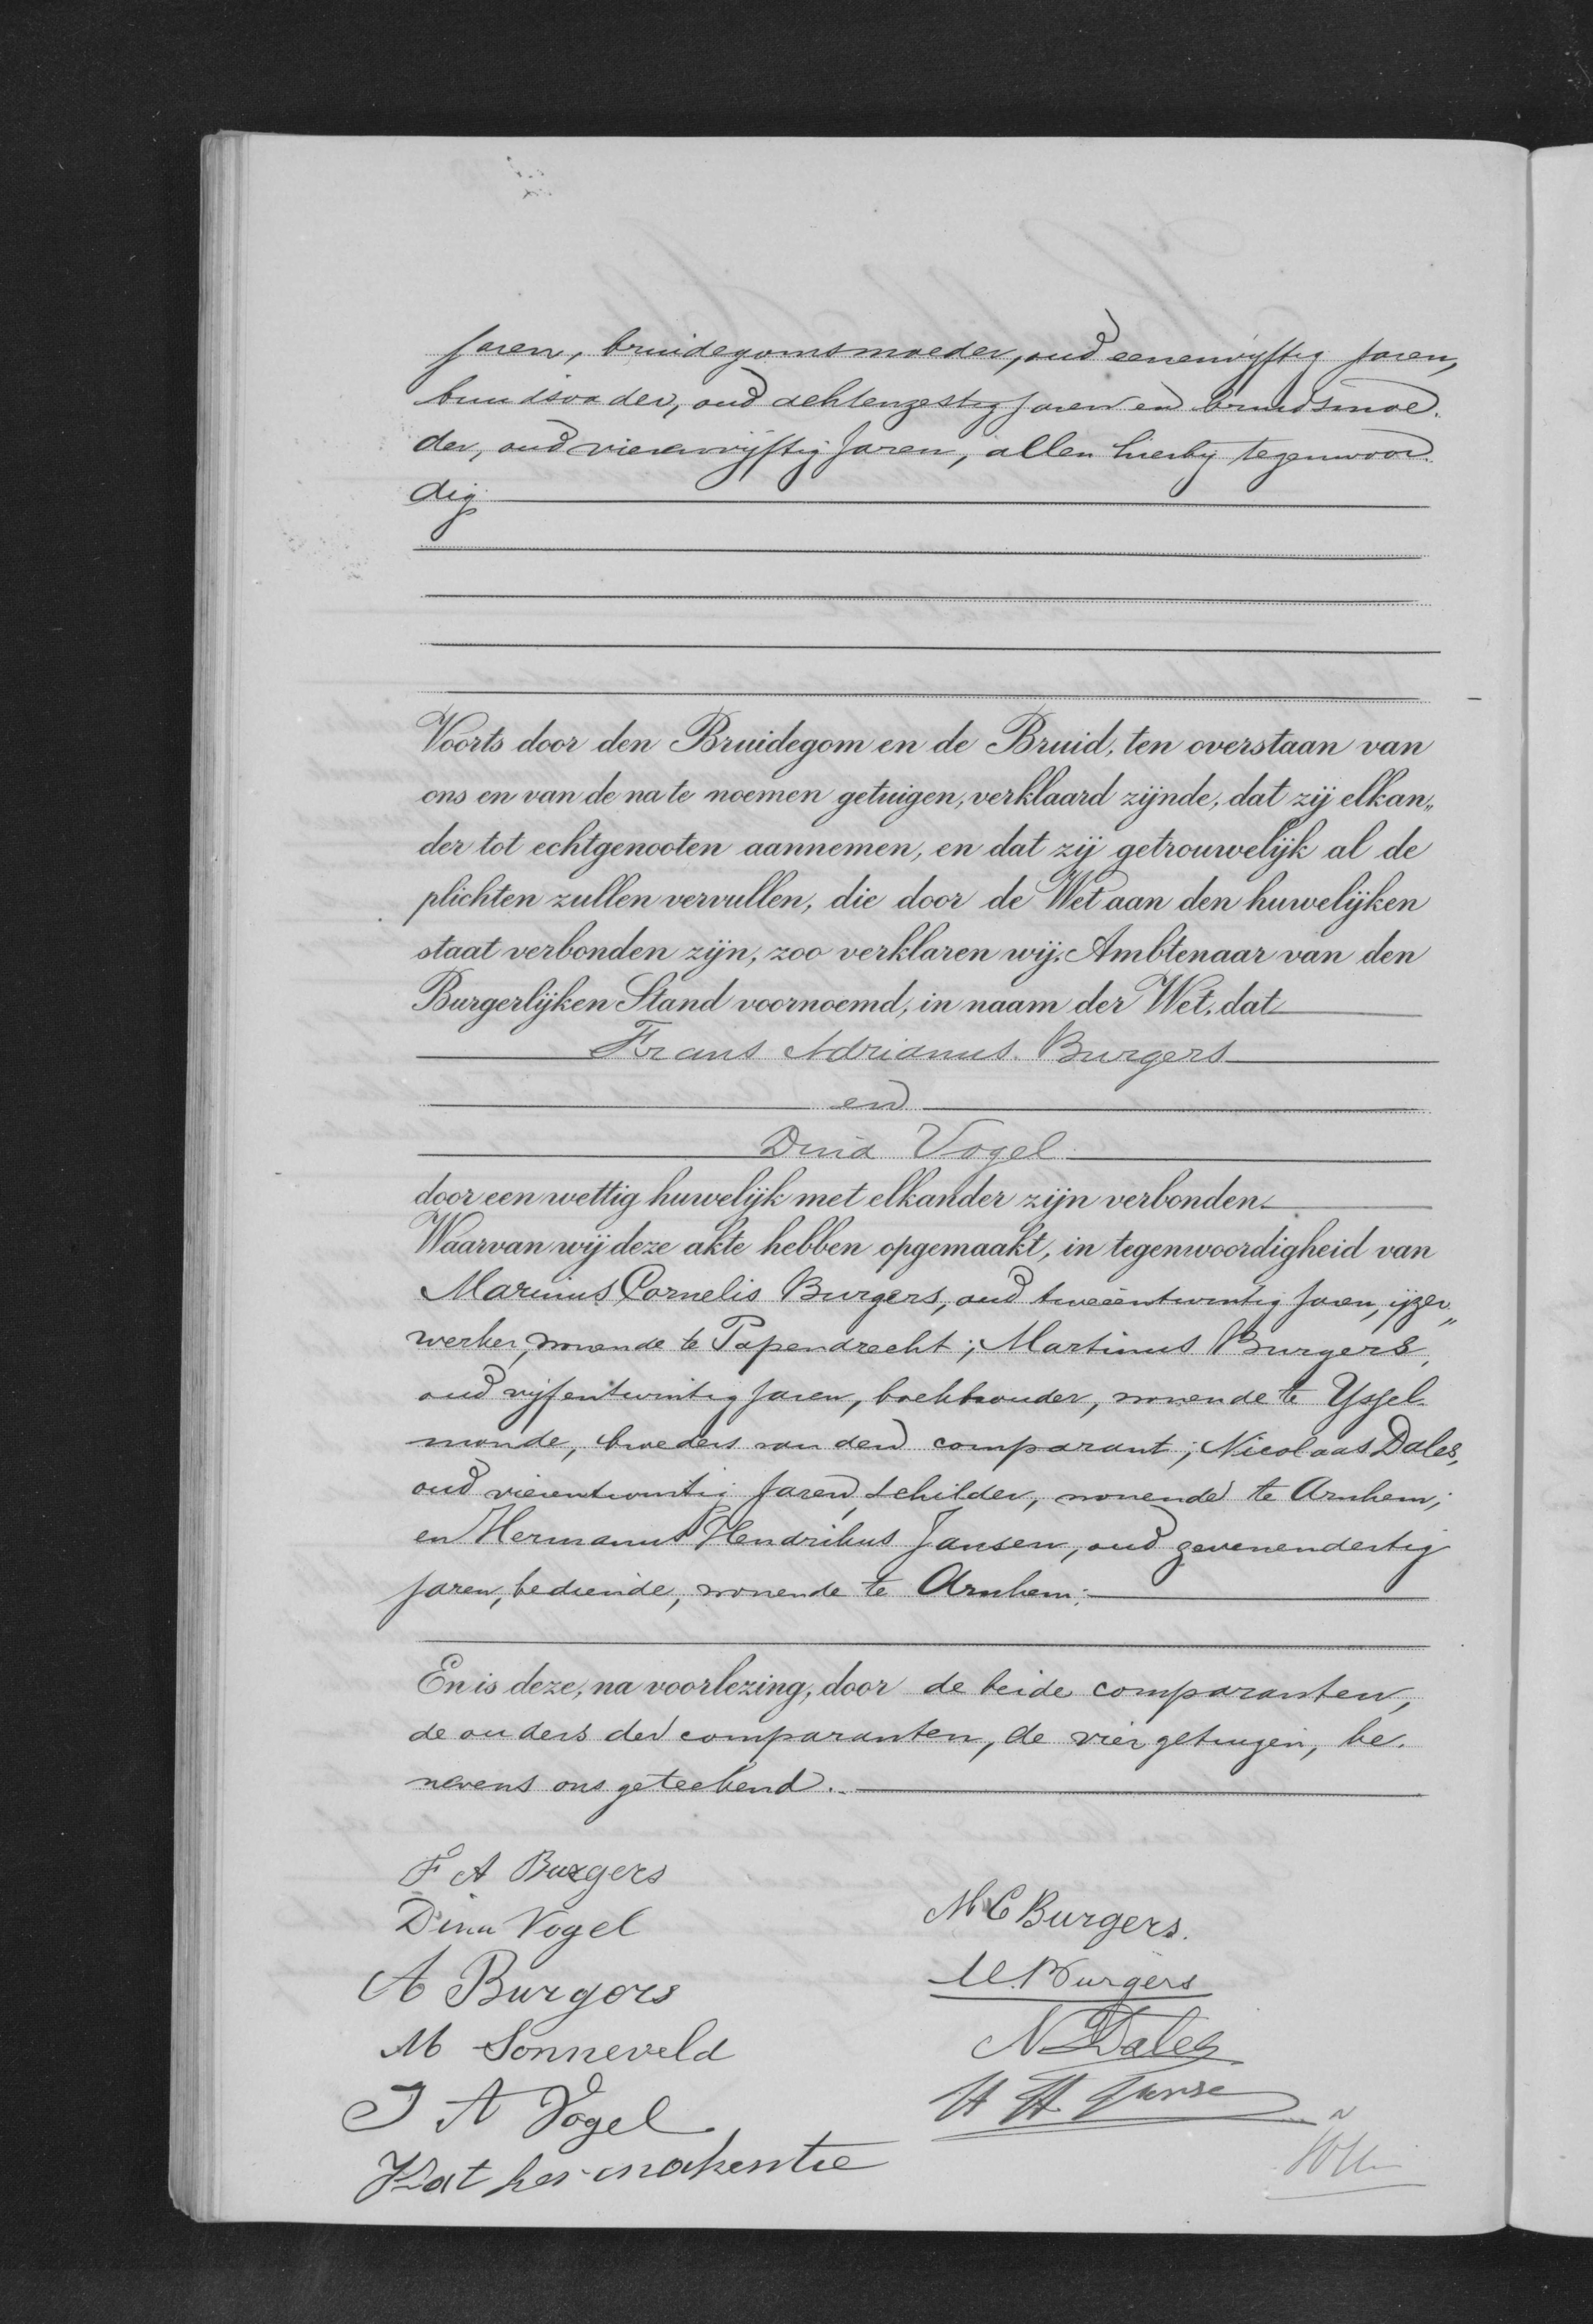 Jaren, bruidegomsmoeder, oud eenenvijftig Jaren,
bruidsvader, oud achtenzestig Jaren en bruidsmoe-
der, oud vierenvijftig Jaren, allen hierbij tegenwoor-
dig
Voorts door den Bruidegom en de Bruid, ten overstaan van
ons en van de na te noemen getuigen, verklaard zijnde, dat zij elkan„
der tot echtgenooten aannemen, en dat zij getrouwelijk al de
plichten zullen vervullen, die door de Wet aan den huwelijken
staat verbonden zijn, zoo verklaren wij, Ambtenaar van den
Burgerlijken Stand voornoemd, in naam der Wet, dat
Frans Adrianus Burgers
en
Dina Vogel
door een wettig huwelijk met elkander zijn verbonden.
Waarvan wij deze akte hebben opgemaakt, in tegenwoordigheid van
Marinus Cornelis Burgers, oud tweeëntwintig Jaren, ijzer„
werker, wonende te Papendrecht; Martinus Burgers,
oud vijfentwintig Jaren, boekhouder, wonende te Yssel-
monde, broeders van den comparant; Nicolaas Dales,
oud vierentwintig Jaren, schilder, wonende te Arnhem;
en Hermanus Hendrikus Jansen, oud zevenendertig
Jaren, bediende, wonende te Arnhem;
En is deze, na voorlezing, door de beide comparanten,
de ouders der comparanten, de vier getuigen, be-
nevens ons geteekend.
F A Burgers
Dina Vogel
A Burgers
M Sonneveld
J A Vogel
M C Burgers.
M. Burgers
N Dales
H H Janse